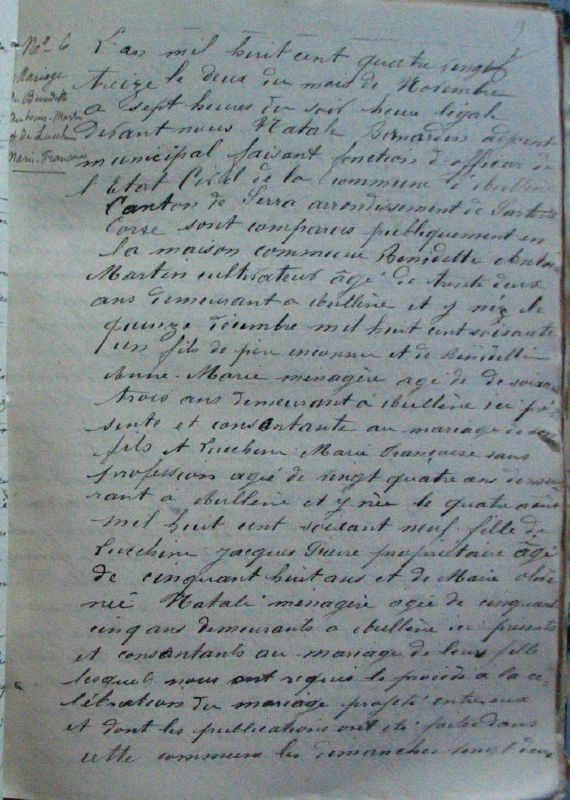 No 6
Mariage
de Benedetti
Martin
et de Lucchini
Marie-Françoise
L'an mil huit cent quatre vingt
treize le deux du mois de Novembre
à sept heures du soir heure légale
devant nous Natali Bernardin adjoint
municipal faisant fonction d'officier de
l'Etat Civil de la commune d'
Canton de Serra arrondissement de Sartène
Corse sont comparus publiquement en
la maison commune Benedetti
Martin cultivateur âgé de trente deux
ans demeurant à et y née le
quinze décembre mil huit cent soixante
un fils de père inconnu et de Benedetti
Anne-Marie menagère agé de de soixante
trois ans demeurant à ici pré-
sente et consentante au mariage de son
fils et Lucchini Marie Françoise sans
profession agée de vingt quatre ans demeu-
rant à et y née le quatre
mil huit cent soixant neuf fille de
Lucchini Jacques Pierre propriétaire âgé
de cinquant huit ans et de Marie
née Natali menagère agée de cinquant
cinq ans demeurants à ici presents
et consentants au mariage de leur fille
lesquels nous ont requis de procéder à la cé-
lébration du mariage projeté entre eux
et dont les publications ont été faites dans
cette commune les dimanches vingt deux